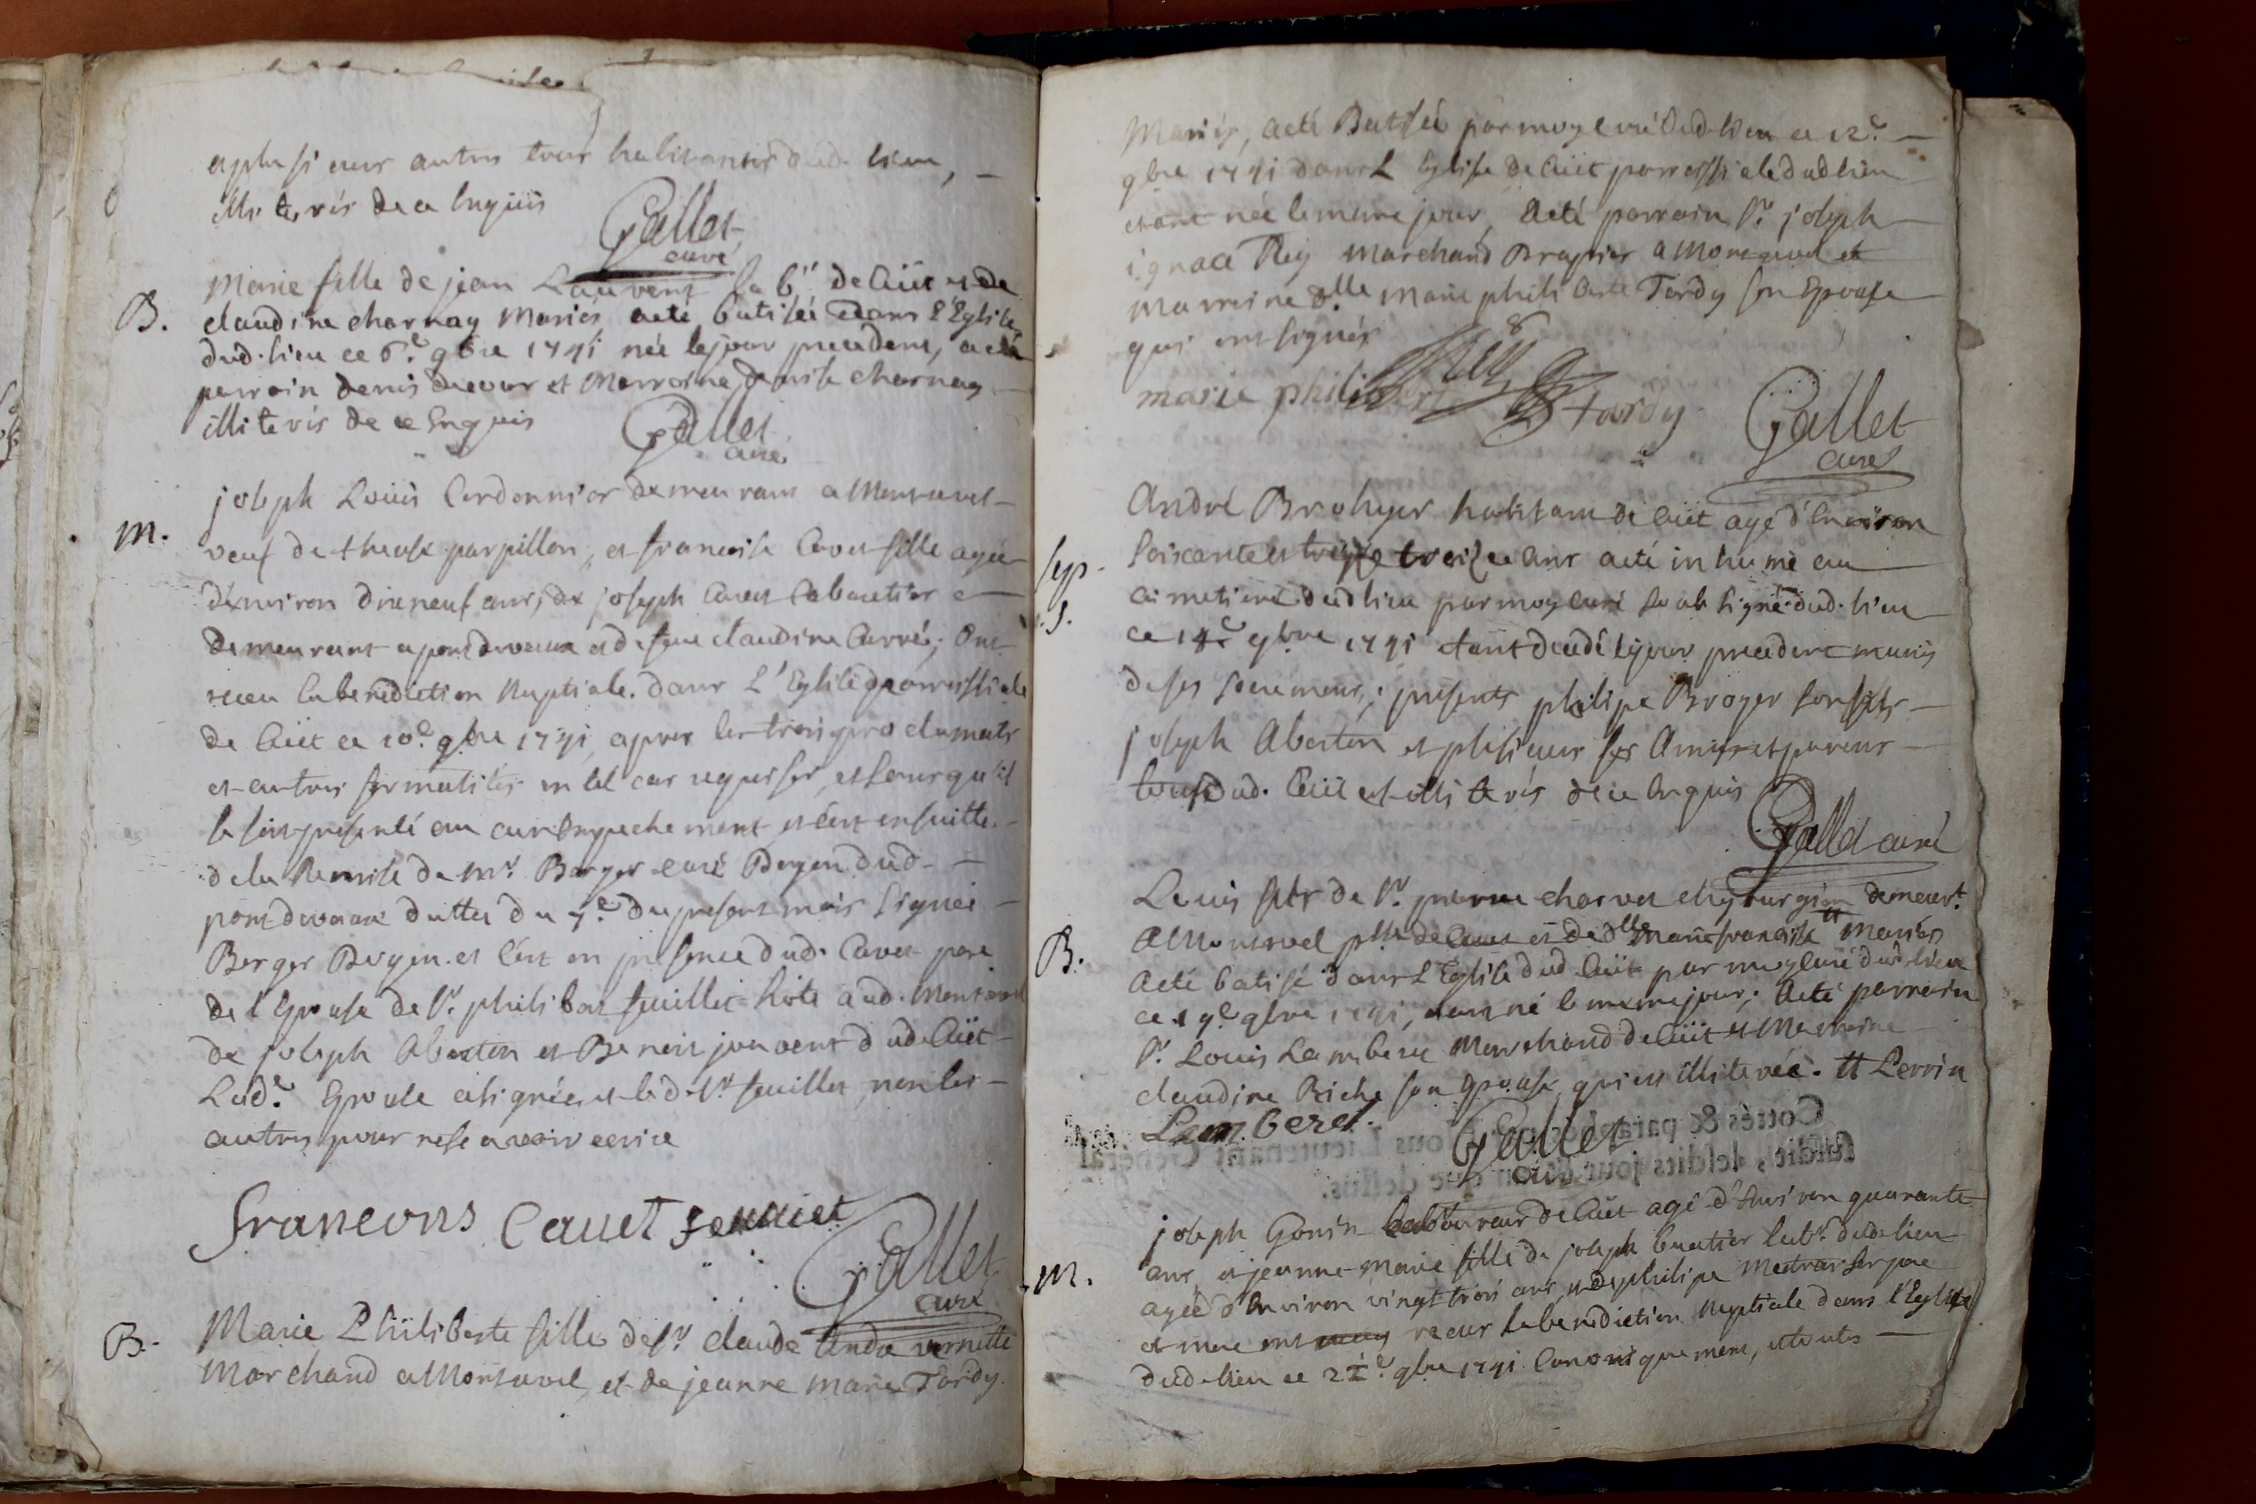 et plusieurs autres tous habitants dud. lieu,
illiterés de ce Enquis
Gallet
curé
B.
Marie fille de jean Lauvent la br de Cüet et de
claudine charnay Mariés, a eté batisée dans L'Eglise
dud. lieu ce 6.e 9bre 1741 née le jour precedent, a eté
parroin denis et Marroine denise charnay
illiterés de ce Enquis
Gallet
curé
M.
joseph Loüis Cordonnier demeurant a Montrevel
veuf de therese parpillon, et francoise Cavet fille agée
d'environ dix neuf ans, de joseph Cavet Cabaretier
demeurant a pontdevaux et de feue claudine Carré; ont
receu la benediction Nuptiale dans L'Eglise parroissiale
de Cüet ce 10.e 9bre 1741, apres les trois proclamats
et autres formalités en tel cas requises, et sans qu'il
se soit presenté aucun Empechement et c'est ensuitte
de la Remise de Mr. Berger curé Doyen dud.
pontdevaux dattée du 7.e du present mois signée
Berger Doyen. et c'est en presence dud. Cavet pere
de l'Epouse de Sr. philibert feuillet hôte aud. Montrevel
de joseph Aberton et Benoit jouvent dud. Cüet
Lad.e Epouse a signée et led. Sr. feuillet, non les
autres pour ne scavoir ecrire
francons Cavet feuliet
Gallet
curé
B.
Marie Philiberte fille de Sr. claude vernette
Marchand a Montrevel, et de jeanne Marie Tardy
Mariés, a eté Batisée par moy curé dud. lieu ce 12.e
9bre 1741 dans L'Eglise de Cüet parroissiale dud. lieu
etant née le meme jour, a eté parroin Sr. joseph
ignace Rey Marchand Drapier a Montrevel et
Marroine dlle Marie philiberte Tardy son Epouse
qui ont signés
Rey
marie philibert tardy
Gallet
curé
Sep.
S.
André Brohyer habitant de Cüet agé d'Environ
soixante et treize ans a eté inhumé au
cimetiere dud lieu par moy curé soubsigné dud. lieu
ce 14.e 9bre 1741 etant decedé le jour precedent munis
de ses sacrements, presents philipe Broyer son fils
joseph Aberton et plusieurs ses Amis et parens
tous dud. Cüet et illiterés de ce Enquis
Gallet curé
B.
Louis fils de Sr. pierre charvet chyrurgien demeurt.
a Montrevel psse de Cuet et de dlle Marie francoise tt Mariés
a eté batisé dans L'Eglise dud. Cüet par moy curé dud. lieu
ce 19.e 9bre 1741, etant né le meme jour; a eté parroin
Sr. Louis Lamberet Marchand de Cüet et Marroine
claudine Riche son Epouse, qui est illiterée. tt Perrin
Lamberet.
Gallet
curé
M.
joseph Gonin Laboureur de Cüet agé d'Environ quarante
ans, et jeanne marie fille de joseph buatier labr. dud. lieu
agée d'Environ vingt trois ans, et de philipe Mestrasles pere
et mere ont receus la benediction Nuptiale dans l'Eglise
dud. lieu ce 22.e 9bre 1741 Canoniquement, et toutes